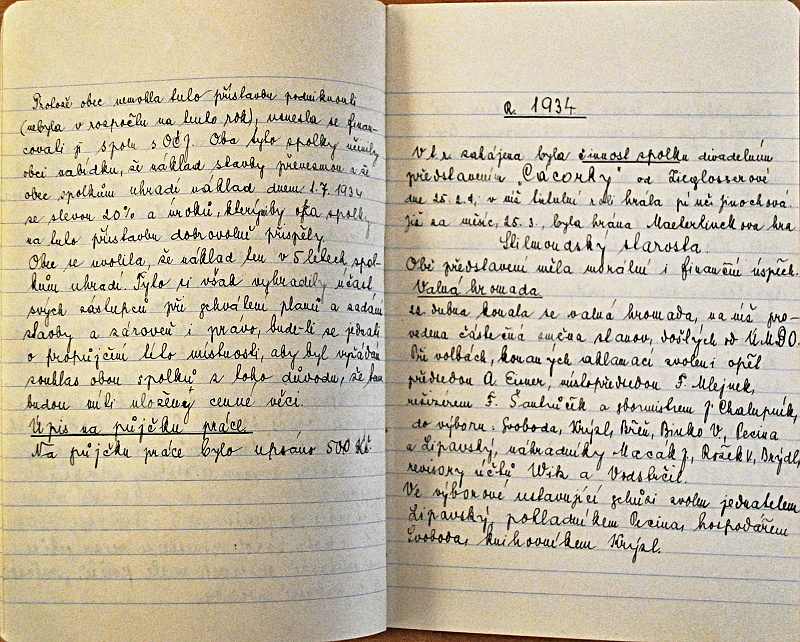 Protože obec nemohla tuto přístavbu podniknouti
(nebyla v rozpočtu na tento rok), usnesla se finan-
covati ji spolu s OČJ. Oba tyto spolky učinily
obci nabídku, že náklad stavby převezmou a že
obec spolkům uhradí náklad dnem 1.7.1934
se slevou 20% a úroků, kterými by oba spolky
na tuto přístavbu dobrovolně přispěly.
Obec se uvolila, že náklad ten v 5 letech spol-
kům uhradí. Tyto si však vyhradily účast
svých zástupců při schválení plánů a zadání
stavby a zároveň i právo, bude-li se jednati
o propůjčení této místnosti, aby byl vyžádán
souhlas obou spolků z toho důvodu, že tam
budou míti uloženy cenné věci.
Úpis na půjčku práce.
Na půjčku práce bylo upsáno 500 Kč.
R. 1934.
V t. r. zahájena byla činnost spolku divadelním
představením "Cácorky" od Zieglosserové
dne 25.2., v níž titulní roli hrála pí uči Jinochová.
Již za měsíc, 25.3., byla hrána Maeterlinckova hra
Stilmondský starosta.
Obě představení měla morální i finanční úspěch.
Valná hromada.
dubna konala se valná hromada, na níž pro-
vedena částečná změna stanov, došlých od ÚMDOČ.
Při volbách, konaných aklamací zvoleni opět
předsedou A. Eisner, místopředsedou F. Mlejnek,
režisérem F. Šantrůček a sbormistrem J. Chalupník,
do výboru: Svoboda, Krýzl, Břeň, Binko V., Pecina
a Lipavský, náhradníky Macák J., Rožek V., Brýdl,
revisory účtů Wik a Vodstrčil.
Ve výborové ustavující schůzi zvolen jednatelem
Lipavský, pokladníkem Pecina, hospodářem
Svoboda, knihovníkem Krýzl.